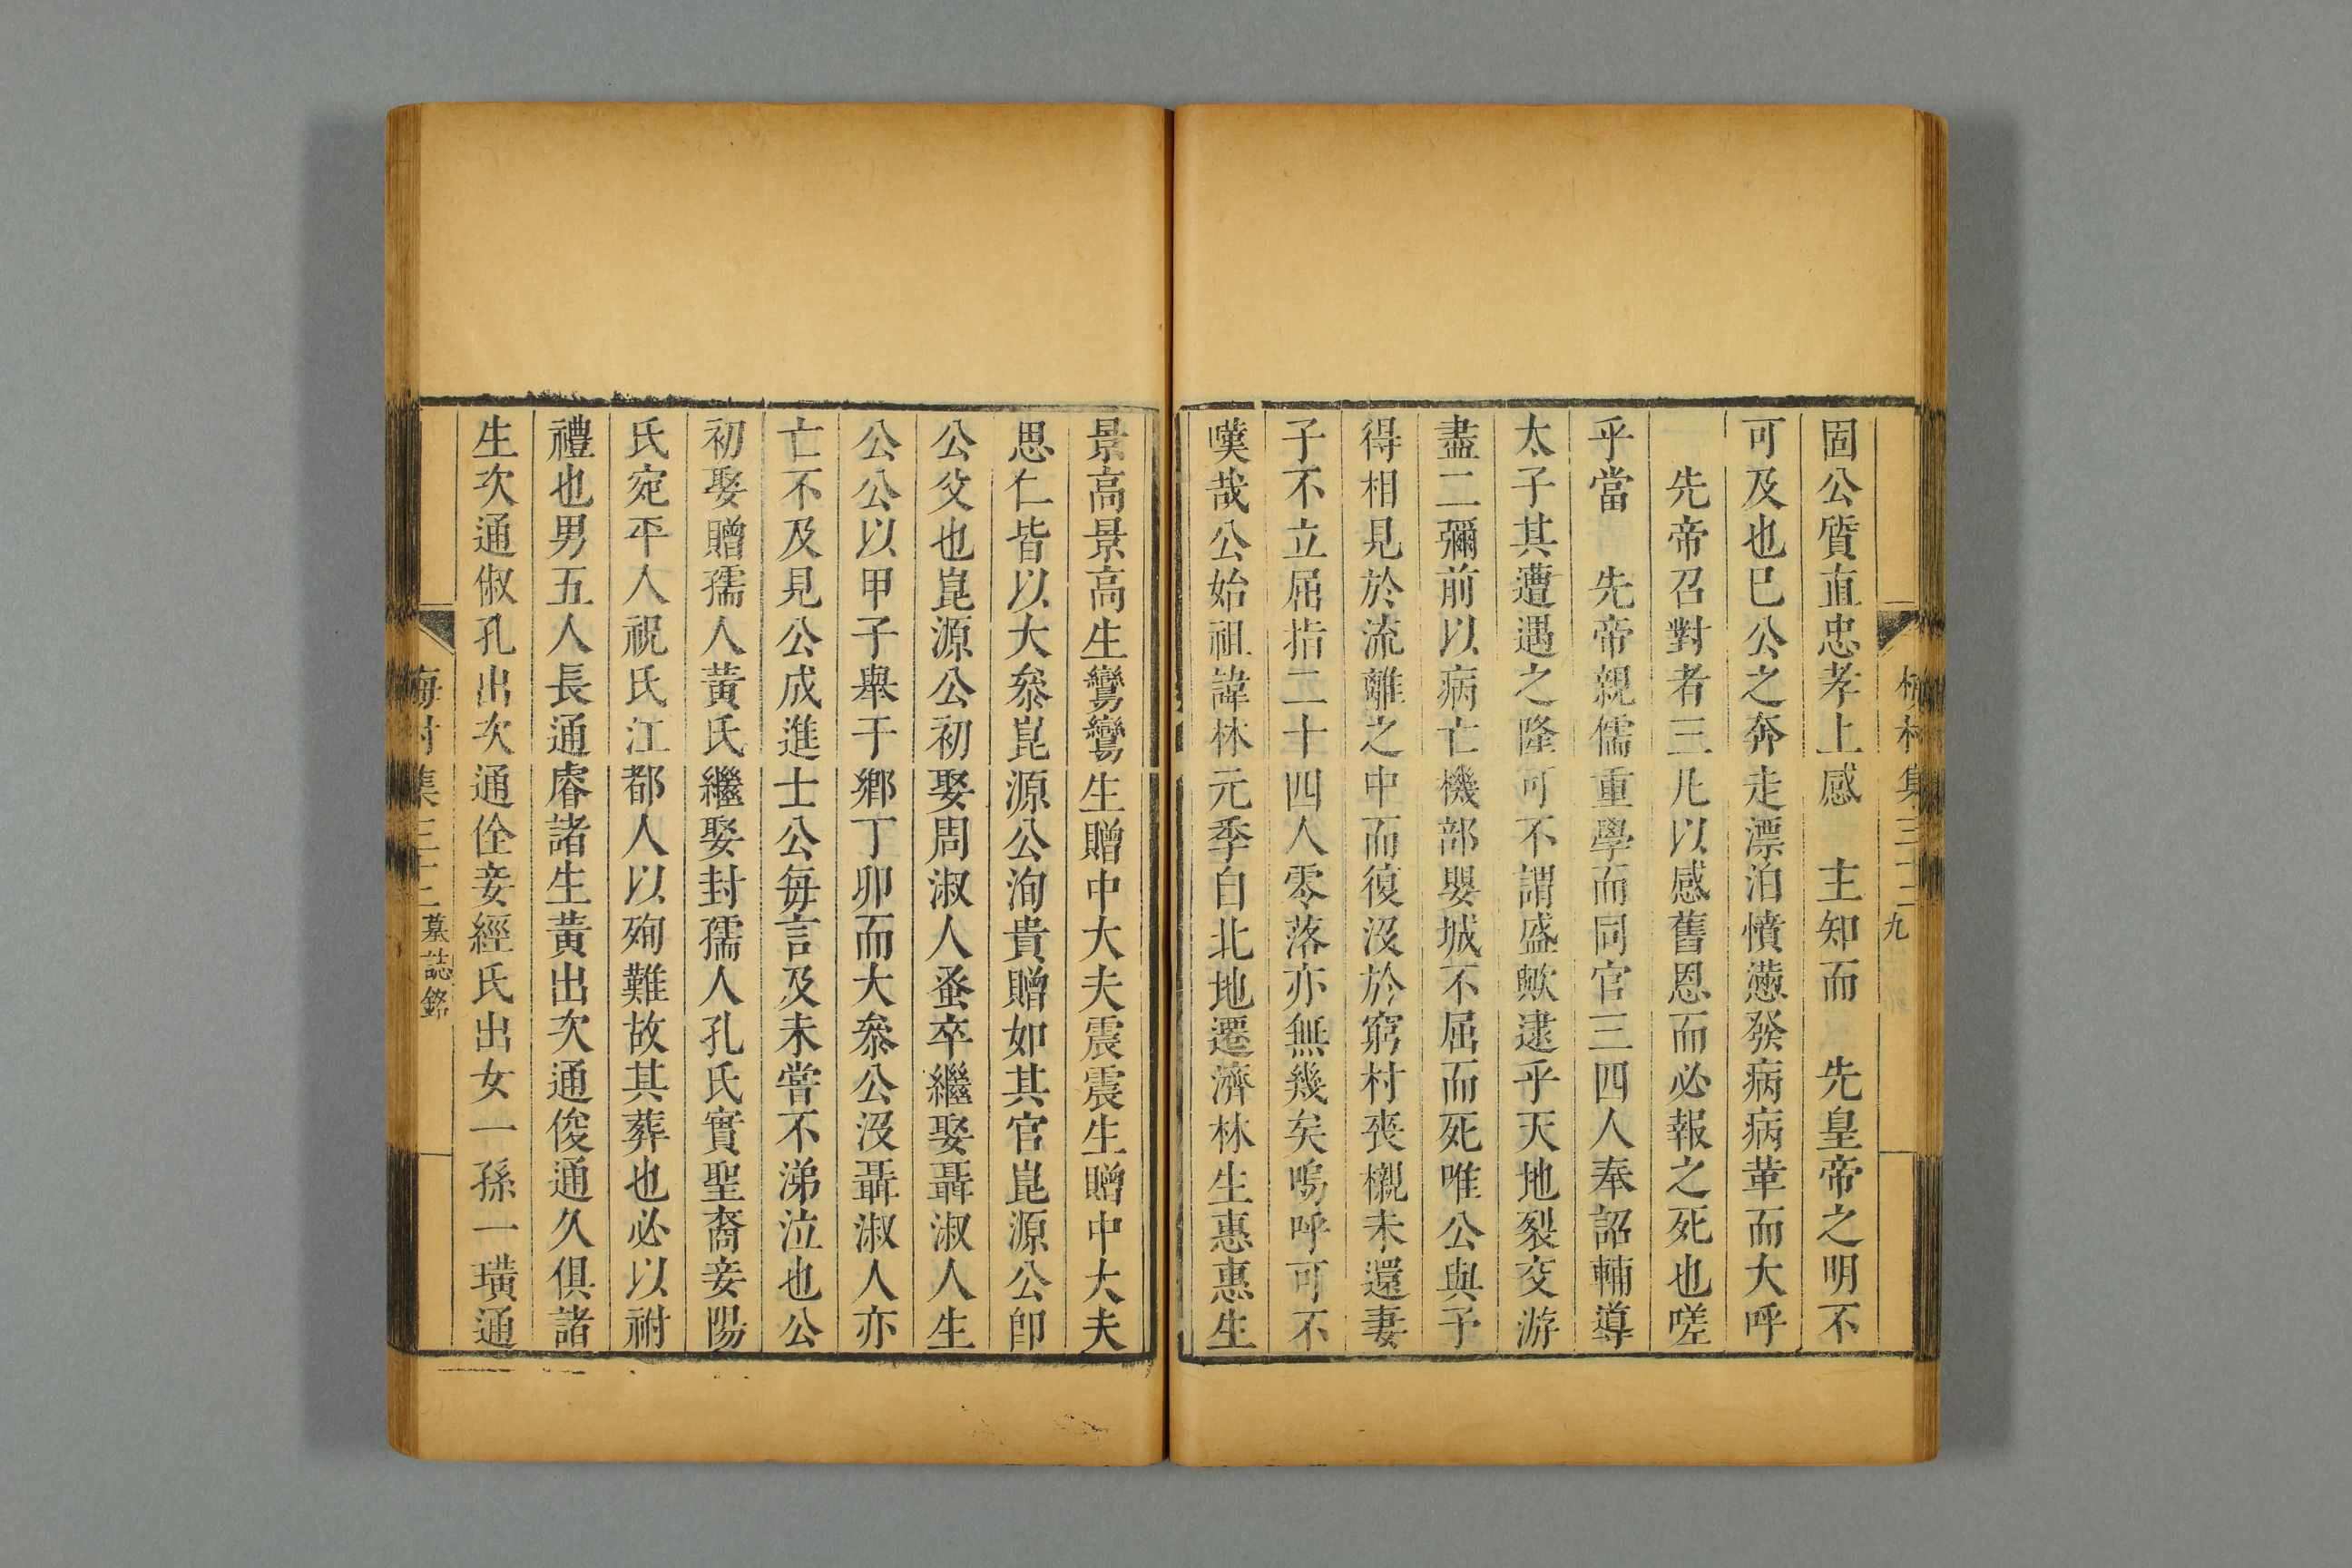 固公質直忠孝上感 主知而 先皇帝之明不
可及也巳公之奔走漂泊憤懣發病病革而大呼
先帝召對者三凡以感舊恩而必報之死也嗟
乎當 先帝親儒重學而同官三四人奉詔輔導
太子其遭遇之隆可不謂盛歟逮乎天地裂交游
盡二彌前以病亡機部嬰城不屈而死唯公與予
得相見於流離之中而復沒於窮村喪櫬未還妻
子不立屈指二十四人零落亦無幾矣嗚呼可不
嘆哉公始祖諱林元季自北地遷濟林生惠惠生
景高景高生鸞鸞生贈中大夫震震生贈中大夫
思仁皆以大叅崑源公洵貴贈如其官崑源公卽
公父也崑源公初娶周淑人蚤卒繼娶聶淑人生
公公以甲子舉于鄉丁卯而大叅公沒聶淑人亦
亡不及見公成進士公每言及未嘗不涕泣也公
初娶贈孺人黃氏繼娶封孺人孔氏實聖裔妾陽
氏宛平人祝氏江都人以殉難故其葬也必以祔
禮也男五人長通睿諸生黃出次通俊通久俱諸
生次通俶孔出次通佺妾經氏出女一孫一璜通
梅村集三十二 墓誌銘
九